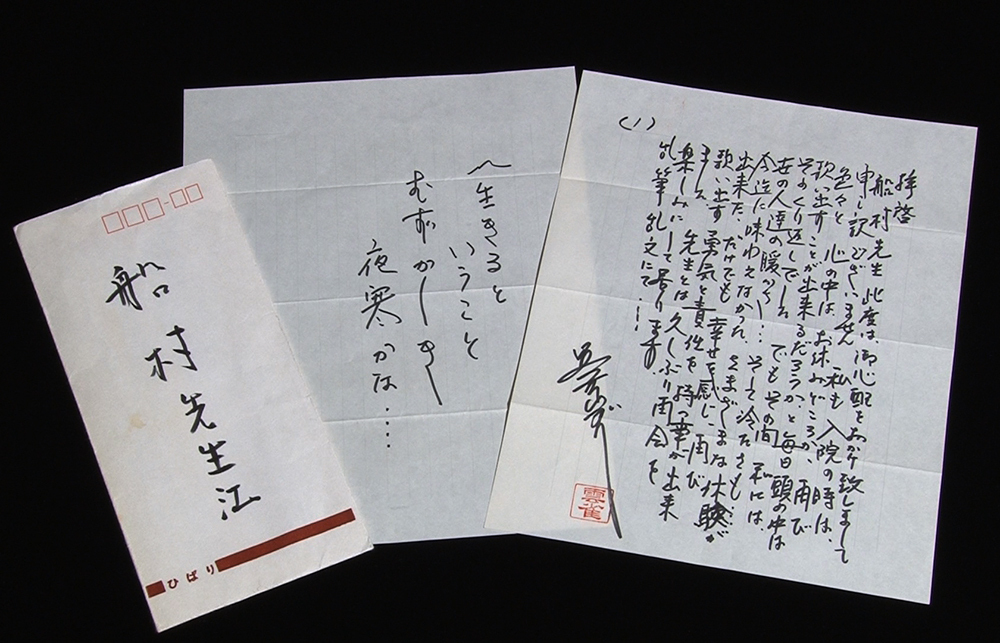 船村先生江
ひばり
〽生きると
いうこと
むずかしき
夜寒かな....
(1)
拝啓
船村先生 此度は御心配をおかけ致しまして
申し訳ございません 私も入院の時は、
色々と 心の中は、お休みどころか、再び
歌い出すことが出来るだろうかと毎日頭の中は
そのくり返しでした でもその間 私には、
世の人達の暖かさ… そして冷たさも…
今迄に味わえなかった さまざまな体験が
出来ただけでも 幸せを感じ 再び
歌い出す 勇気と責任を持つ事が出来
ました 先生とは久しぶり再会を
楽しみにして居ります。
乱筆乱文にて…
雲雀